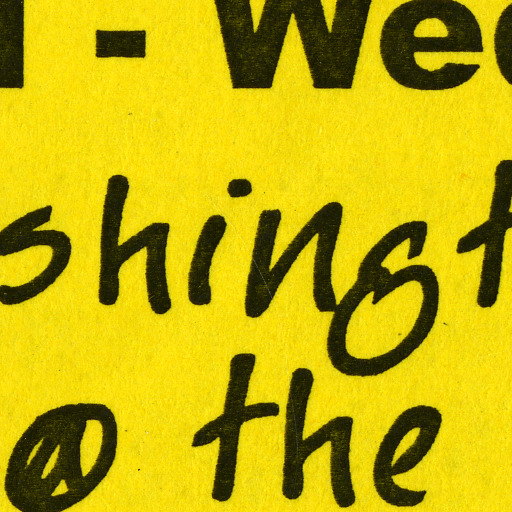 - We
shingt
@ the